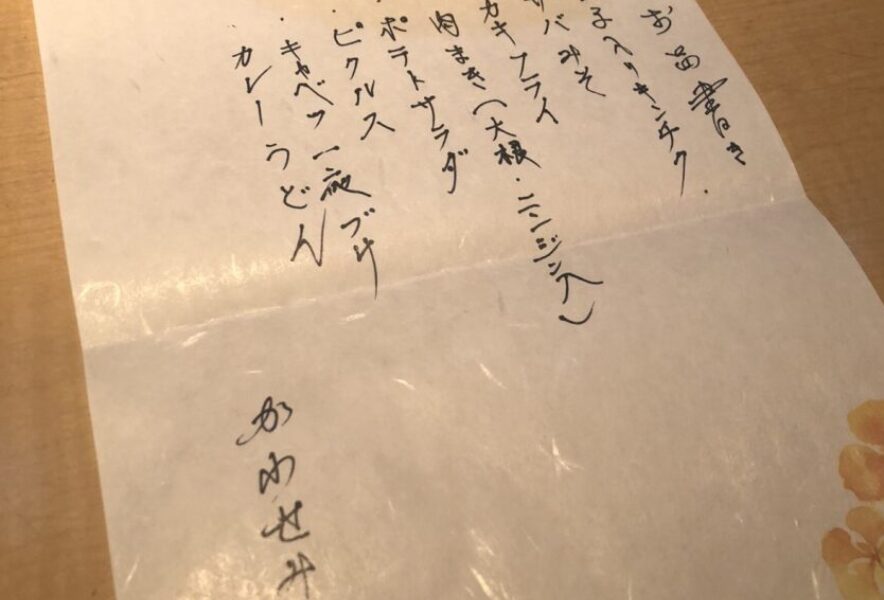 お品書き
子入りキンチク
サバみそ
カキフライ
肉まき(大根・ニンジン入)
ポテトサラダ
ピクルス
キャベツ一夜づけ
カレーうどん
かわせみ